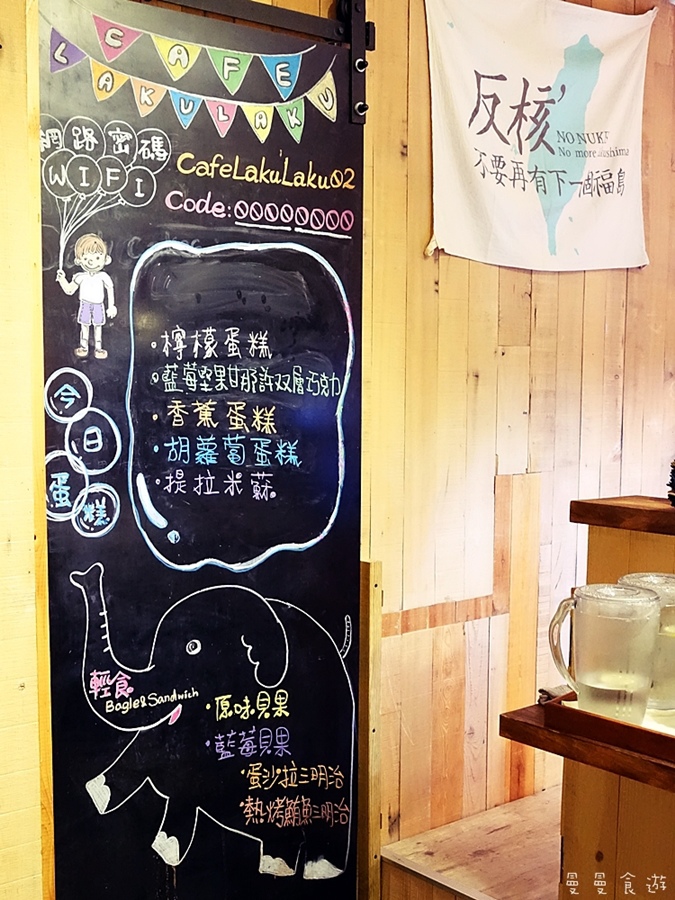 CAFE
LAKULAKU
網路密碼
WIFI
CafeLaku'Laku02
Code:00000000
今日蛋糕
·檸檬蛋糕
·藍莓堅果甘那許双層巧克力
·香蕉蛋糕
·胡蘿蔔蛋糕
·提拉米蘇
輕食
Bagle&Sandwich
·原味貝果
·藍莓貝果
·蛋沙拉三明治
·熱烤鮪魚三明治
反核'
NO NUKE
No more Fukushima
不要再有下一個福島
曼曼食遊